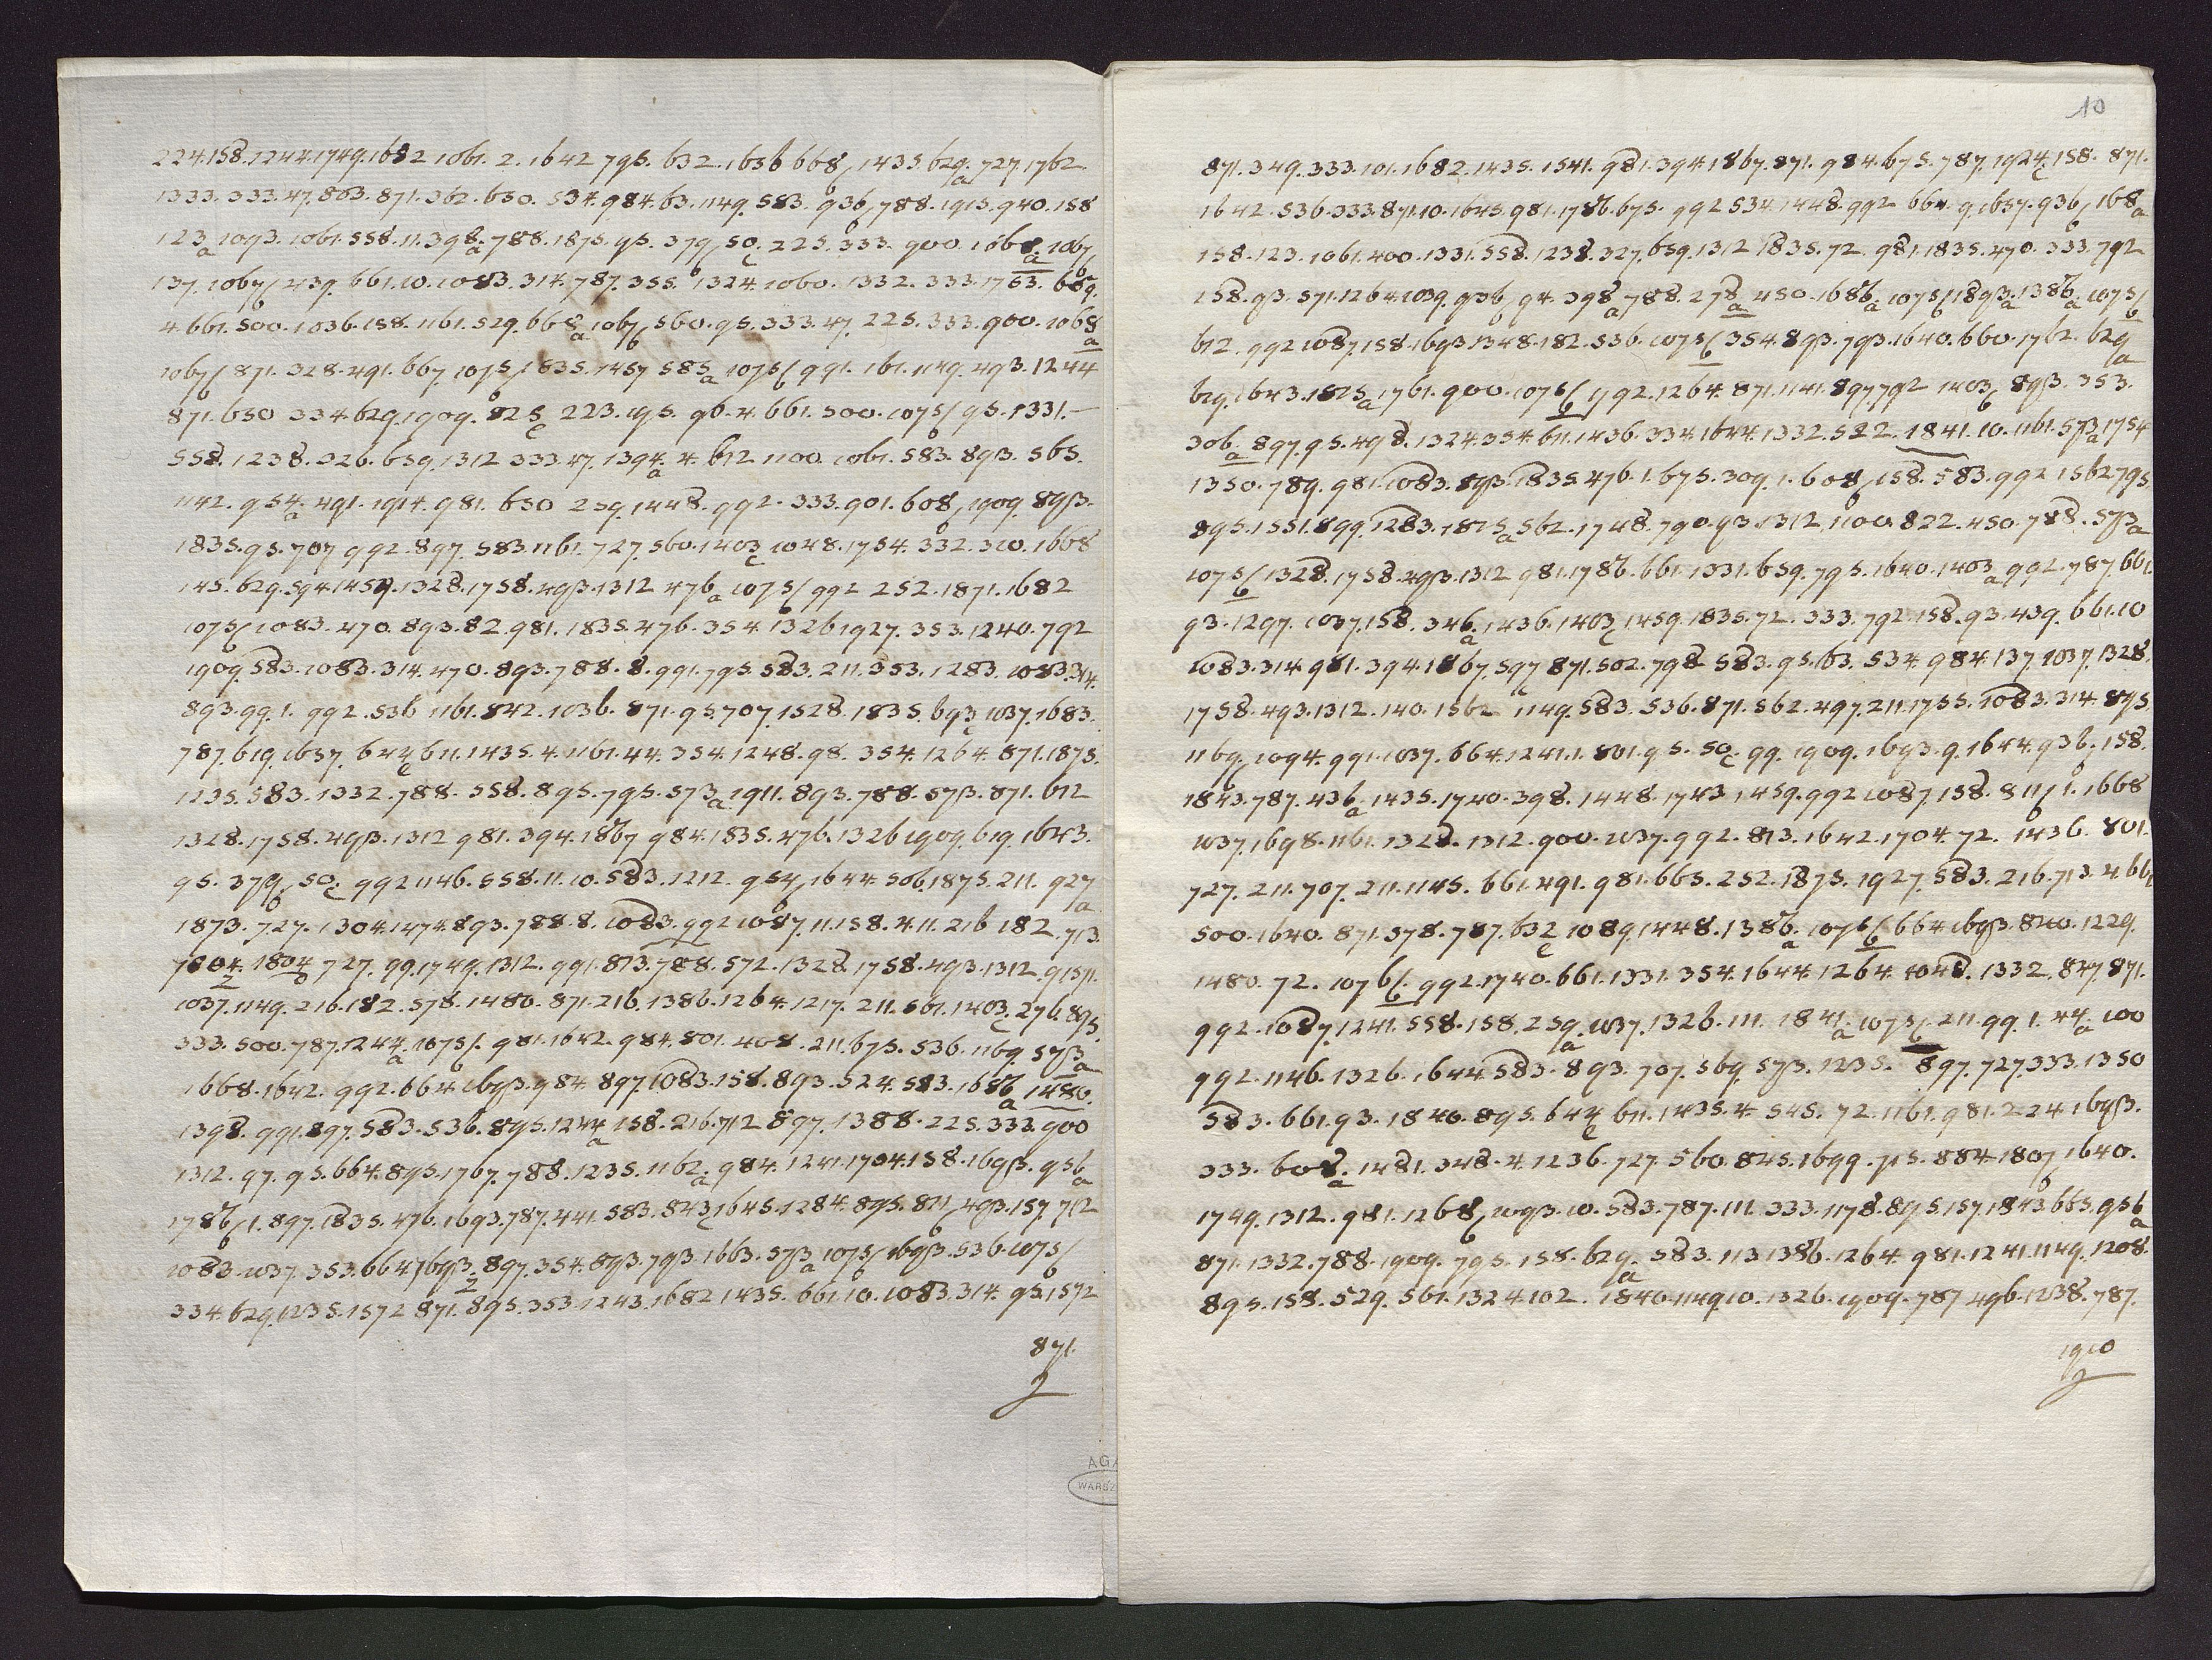 224.158.1244.1749.1682 1061. 2. 1642 795. 632. 1656 668/b 1435 629.a 727. 1762
1333. 333. 47. 803. 871. 362. 650. 534. 984. 63. 1149. 583. 936/b 788. 1915. 940. 158
123a 1093. 1061. 558. 11. 398.a 788. 1875. 95. 379/b 50.c 225. 333. 900. 1068.a 1067/b
137. 1067/b 439. 661. 10. 1083. 314. 787. 355. 1324. 1060. 1332. 333. 1753. 669.
4. 661. 500. 1036. 158. 1161. 529. 668a 1067/b 560. 95. 333. 47. 225. 333. 900. 1068a
1067/b 871. 328. 491. 667. 1075/b 1835. 1457 585a 1075/b 991. 161. 1149. 493. 1244
871. 650 334. 629. 1909. 825c 223. 195. 96. 4. 661. 500. 1075/b 95. 1331.—
558. 1238. 326. 659. 1312 333. 47. 1394.a 4. 612 1100. 1061. 583. 893. 565.
1142. 954.a 491. 1914. 981. 650 259. 1448. 992. 333. 901. 608/b 1909. 893.
1835. 95. 707. 992. 897. 583. 1161. 727. 560. 1403c 1048. 1754. 332. 310. 1668
145. 629. 594. 1459. 1328. 1758. 493. 1312 476a 1075/b 992 252. 1871. 1682
1075/b 1083. 470. 893. 82. 981. 1835. 476. 354. 1326 1927. 353. 1240. 792
1909. 583. 1083. 314. 470. 893. 788. 8. 991. 795. 583. 211. 353. 1283. 1083. 314.
893. 99. 1. 992. 536 1161. 842. 1036. 871. 95. 707. 1528. 1835. 693c 1037. 1683.
787. 619. 1657. 644c 611. 1435. 4. 1161. 44. 354. 1248. 98. 354. 1264. 871. 1875.
1235. 583. 1332. 788. 558. 895. 795. 573a 1911. 893. 788. 573. 871. 612
1328. 1758. 493. 1312 981. 394. 1867 984. 1835. 476. 1326 1909. 619. 1643.
95. 379/b 50.c 992 1146. 558. 11. 10. 583. 1212. 954/b 1644. 506. 1875. 211. 927a
1873. 727. 1304. 1474. 893. 788. 8. 1083. 992 1087. 11. 158. 4. 11. 216 182. 713.
7804. 1804 727. 99. 1749. 1312. 991. 873. 788. 572. 1328. 1758. 493. 1312. 91511.
1037. 1149. 216. 182. 578. 1480. 871. 216. 1386. 1264. 1217. 211. 661. 1403.c 276. 895.
333. 500. 787. 1244.a 1075/b. 981. 1642. 984. 801. 408. 211. 675. 536. 1169. 573a
1668. 1642. 992. 664. 1693. 984. 897. 1083. 158. 893. 524. 583. 1686a 1480.
1398. 991. 897. 583. 536. 895. 1244a 158. 216. 712 897. 1388. 225. 333. 900
1312. 97. 95. 664. 895. 1767. 788. 1235. 1162.a 984. 1241. 1704. 158. 1693. 956a
1786/b 1. 897. 1835. 476. 1693. 787. 441. 583. 843c 1645. 1284. 895. 811/b 493. 157. 712
1083. 1037. 353. 664 1693. 897. 354. 893. 793. 1663. 573a 1075/b 1693. 536. 1075/b
334. 629. 1235. 1572 871. 895. 353. 1243. 1682 1435. 661 10. 1083. 314. 95. 1572
871.
10
871. 349. 333. 101. 1682. 1435. 1541. 981. 394. 1867. 871. 984. 675. 787. 1924.c 158. 871.
1642. 536. 333. 871. 10. 1645. 981. 1786. 675. 992 534. 1448. 992 664. 9. 1657. 936/b 168a
158. 123. 1061. 400. 1331. 558. 1238. 327. 659. 1312 1835. 72. 981. 1835. 470. 333. 792
158. 93. 571. 1264. 1039. 936/b 94. 398a 788. 278a 450. 1686a 1075/b 1893a 1386a 1075/b
612. 992 1087. 158. 1693. 1348. 182. 536. 1075/b 354. 893. 793. 1640. 660. 1762. 629a
629. 1643. 1825a 1761. 900. 1076/b 1792. 1264. 871. 1141. 897. 792 1403/b 893. 353.
306.a 897. 95. 498. 1324. 354. 611. 1436. 334. 1644. 1332. 522. 1841. 10. 1161. 573a 1754
1350. 789. 981. 1083. 893. 1835. 476. 1. 675. 309. 1. 608/b 158. 583. 992 1562 795.
895. 1551. 899. 1283. 1825a 562. 1748. 790. 93. 1312. 1100. 822. 450. 788. 573a
1075/b 1328. 1758. 493. 1312 981. 1786. 661. 1331. 659. 795. 1640. 1403a 992. 787. 661
93. 1297. 1037. 158. 346.a 1436. 1403c 1459. 1835. 72. 333. 792. 158. 93. 439. 661. 10
1083. 314. 981. 394. 1867. 597c 871. 502. 798 583. 95. 63. 534. 984. 137. 1037. 1328.
1758. 493. 1312. 140. 1562 1149. 583. 536. 871. 562. 497. 211. 1755. 1083. 314. 895
1169c 1094. 991. 1037. 664. 1241. 1. 801. 95. 50.c 99. 1909. 1693. 9. 1644. 936/b 158.
1843. 787. 436a 1435. 1740. 398. 1448. 1743 1459. 992 1087. 158. 811/b 1. 1668
1037. 1698. 1161. 1328. 1312. 900. 1037. 992. 813. 1642. 1704. 72. 1436. 801.
727. 211. 707. 211. 1145. 661. 491. 981. 665. 252. 1875. 1927. 583. 216. 713. 4. 661
500. 1640. 871. 578. 787. 632c 1089. 1448. 1386.a 1076/b 664. 1693. 840. 1229.
1480. 72. 1076/b. 992. 1740. 661. 1331. 354. 1644. 1264. 1048. 1332. 847. 871.
992. 1087. 1241. 558. 158. 259a 1037. 1326. 111. 1841.a 1075/b 211. 99. 1. 44.a 100
992. 1146. 1326. 1644. 583. 893. 707. 569. 573. 1235. 897. 727. 333. 1350
583. 661. 93. 1840. 895. 644c 611. 1435. 4. 545. 72. 1161. 981. 224 1693.
333. 608.a 1481. 348. 4. 1236. 727. 560. 845. 1699. 715. 884. 1807/b 1640.
1749. 1312. 981. 1268/b 1093. 10. 583. 787. 111. 333. 1178. 895. 157. 1843. 665. 956a
871. 1332. 788. 1909. 795. 158. 629.a 583. 113. 1386. 1264. 981. 1241. 1149. 1208.
895. 158. 529. 561. 1324. 102. 1840. 1149. 10. 1326. 1909. 787 496. 1238. 787.
1910
AGA
WARSZ